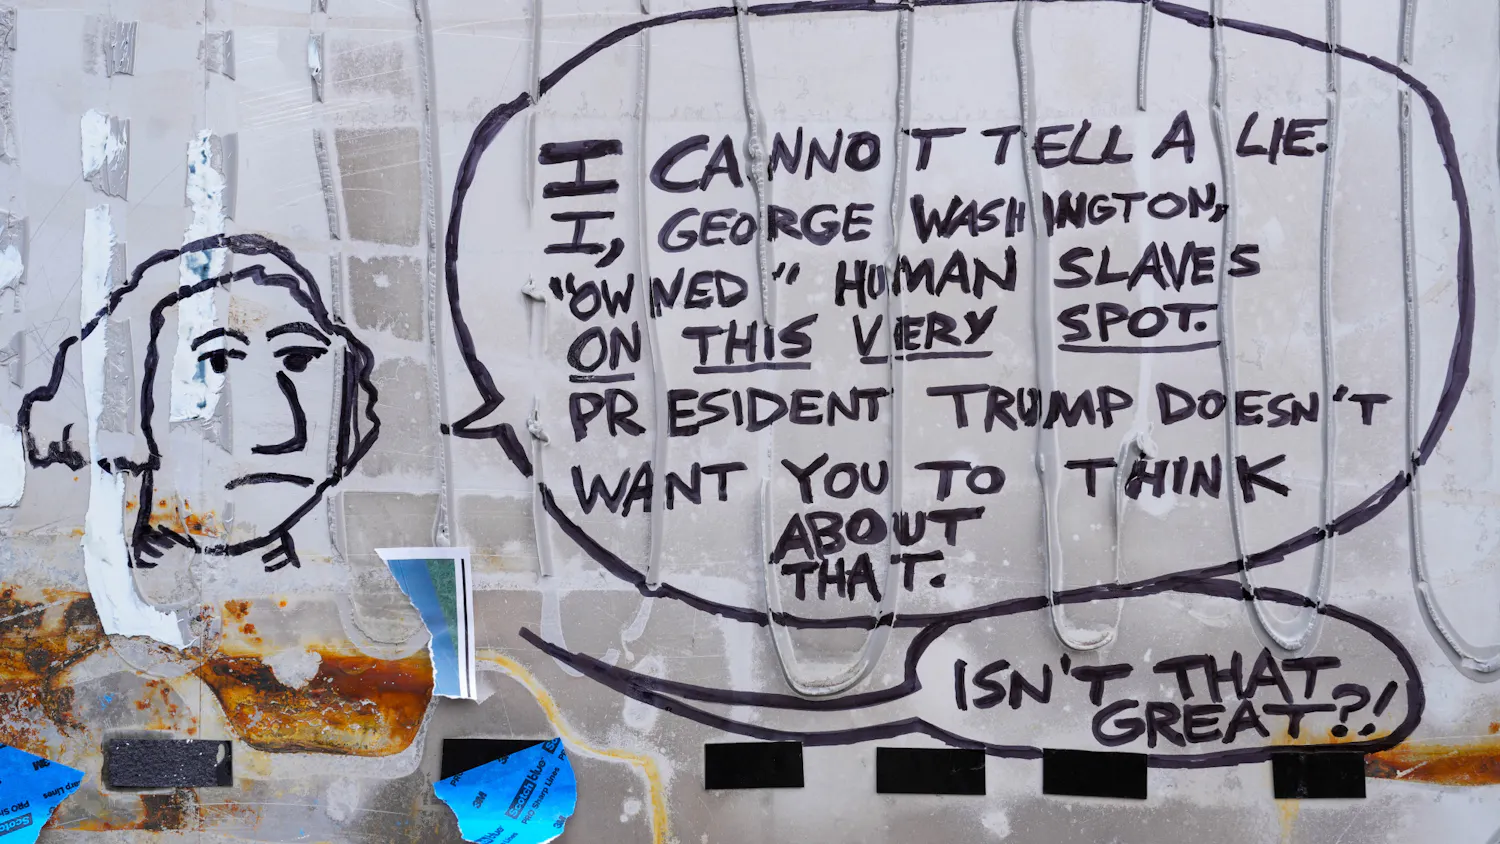 I CANNOT TELL A LIE.
I, GEORGE WASHINGTON,
"OWNED" HUMAN SLAVES
ON THIS VERY SPOT.
PRESIDENT TRUMP DOESN'T
WANT YOU TO THINK
ABOUT
THAT.
ISN'T THAT
GREAT?!
3M
PRO Sharp Lines
Scotch
3M
ScotchBlue
PRO Sharp Lines
3M